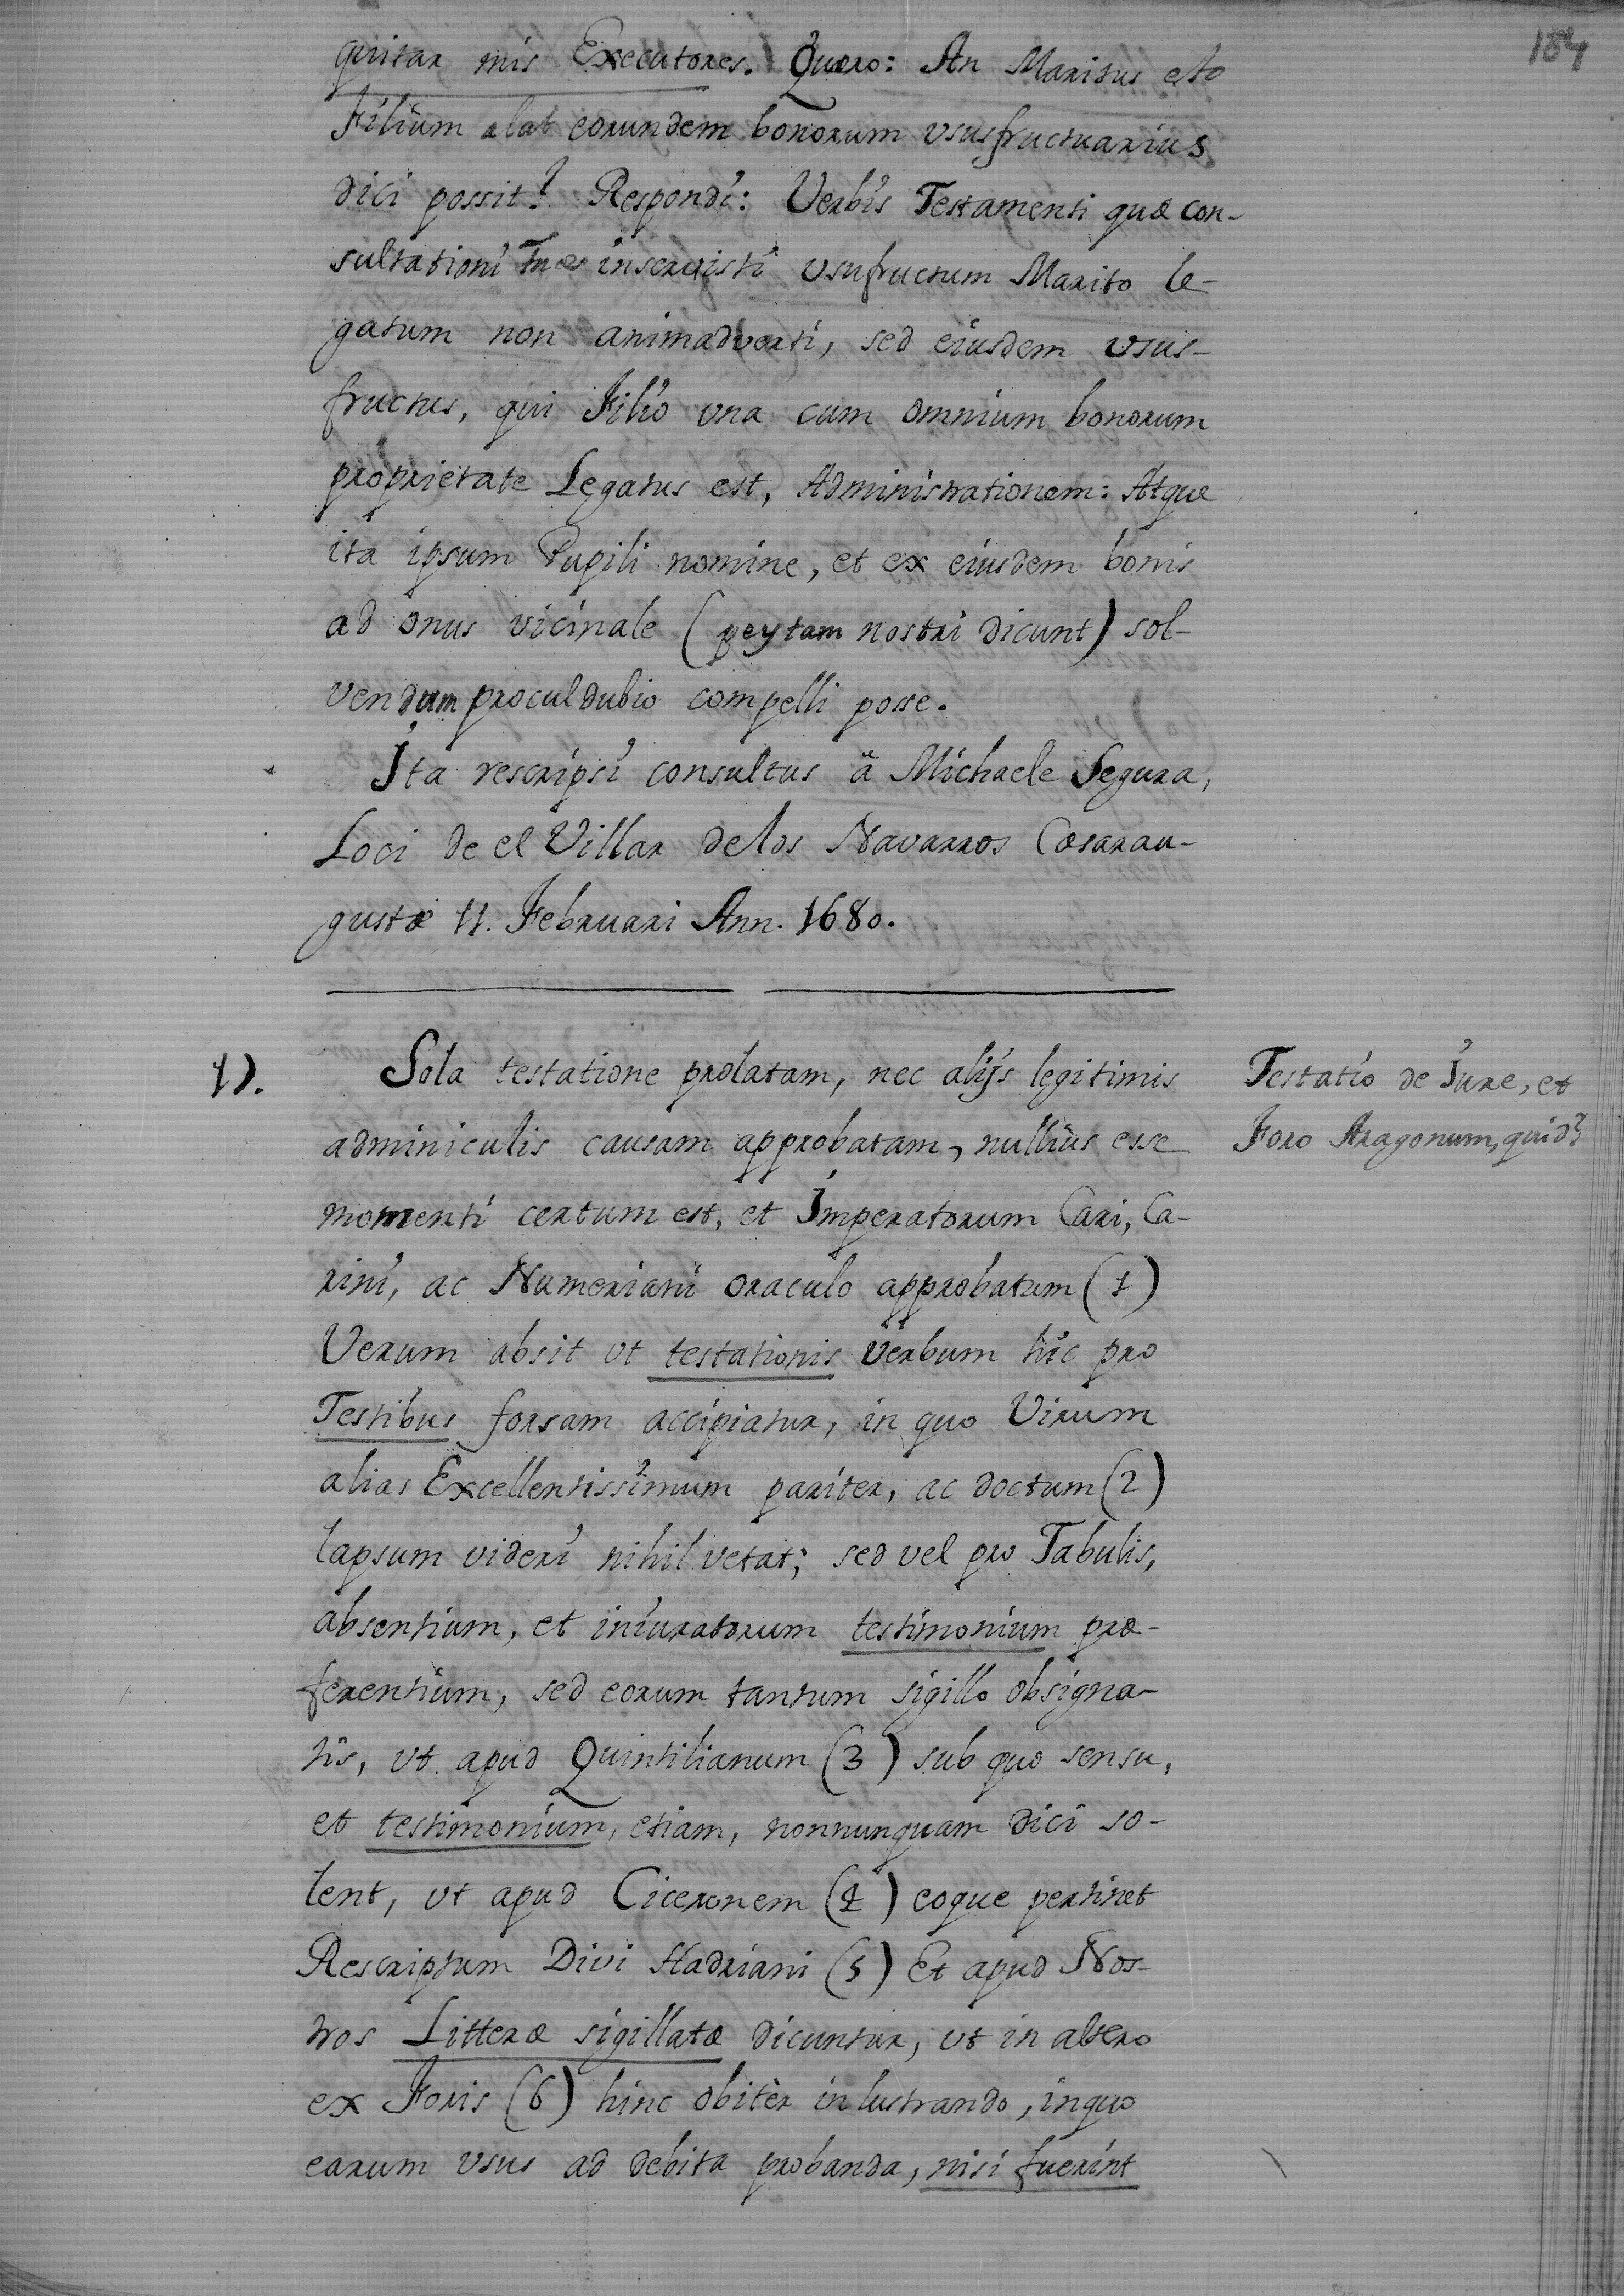 184
quitar mis Executores. Quæro: An Maritus esto
Filium alat eorundem bonorum ususfructuarius
dici possit? Respondi: Verbis Testamenti quæ con-
sultationi Tuæ inseruisti usufructum Marito le-
gatum non animadverti, sed eiusdem usus-
fructus, qui Filio una cum omnium bonorum
proprietate Legatus est, Administrationem: Atque
ita ipsum Pupili nomine, et ex eiusdem bonis
ad onus vicinale (peytam nostri dicunt) sol-
vendum proculdubio compelli posse.
Ita rescripsi consultus à Michaele Segura,
Loci de el Villar delos Navarros Cæsarau-
gustæ 11. Februari Ann. 1680.
Sola testatione prolatam, nec alijs legitimis
adminiculis causam approbatam, nullius esse
momenti certum est, et Imperatorum Cari, Ca-
rini, ac Numeriani oraculo approbatum (1)
Verum absit ut testationis verbum hic pro
Testibus forsam accipiatur, in quo Virum
alias Excellentissimum pariter, ac doctum (2)
lapsum videri nihil vetat; sed vel pro Tabulis,
absentium, et iniuratorum testimonium præ-
ferentium, sed eorum tantum sigillo obsigna-
tis, ut apud Quintilianum (3) sub quo sensu,
et testimonium, etiam, nonnunquam dici so-
lent, ut apud Ciceronem (4) eoque pertinet
Rescriptum Divi Hadriani (5) Et apud Nos-
tros Litteræ sigillatæ dicuntur, ut in altero
ex Foris (6) hinc obitèr inlustrando, inquo
earum usus ad debita probanda, nisi fuerint
Testatio de Iure, et
Foro Aragonum, quid?